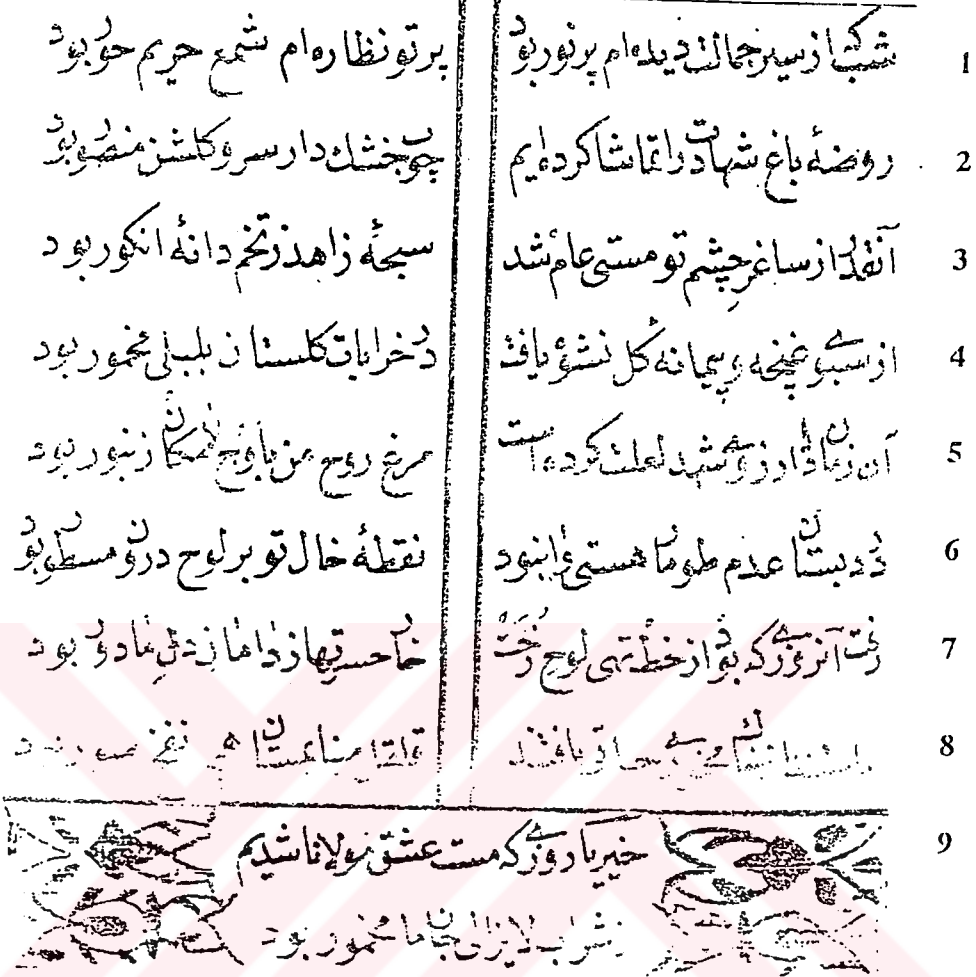 1 شب که از سیر جمالت دیده‌ام پر نور بود پرتو نظاره‌ام شمع حریم حور بود
2 روضهٔ باغ شهادت را تماشا کرده‌ایم چوب خشک دار سرو گلشن منصور بود
3 آنقدر از ساغر چشم تو مستی عام شد سبحهٔ زاهد ز تخم دانهٔ انکور بود
4 از سبوی غنچه و پیمانه کل نشؤ یافت در خرابات کلستان بلبلی مخمور بود
5 آن زمان آرزوی شهد لعلت کرده است مرغ روح من باوج لامکان زنبور بود
6 در دبستان عدم طومار هستی وا نبود نقطهٔ خال تو بر لوح درون مسطور بود
7 رفت آنروزی که بود از خط تهی لوح رخت خار حسرتها ز دامان دل ما دور بود
8 یافتند نفخ صور بود
9 خیر یاد روزی که مست عشق مولانا شدیم
شراب لایزالی جان ما مخمور بود